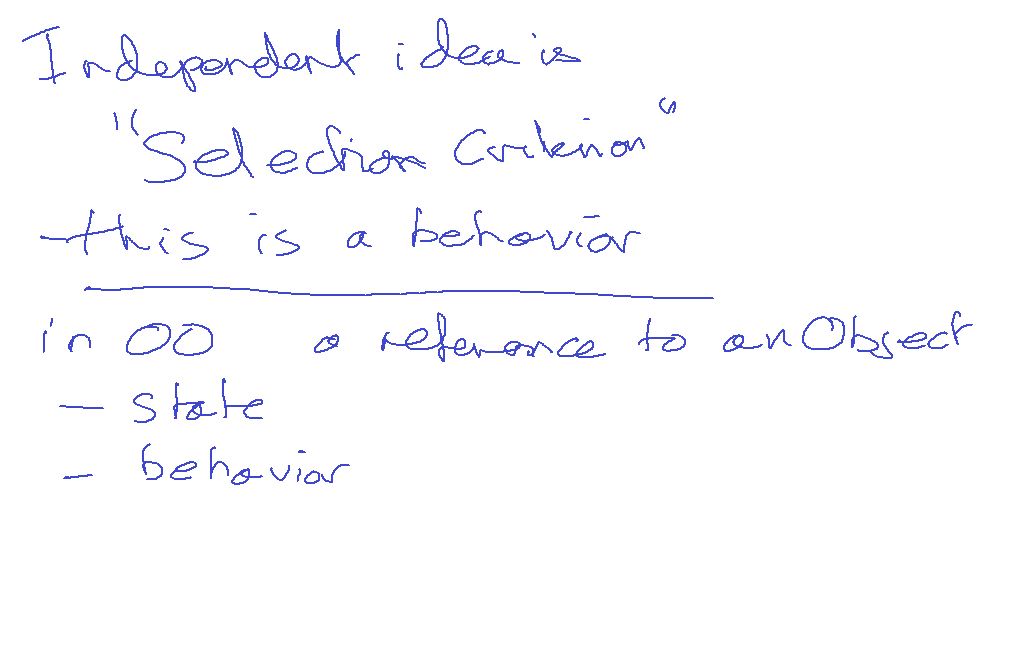 Independent idea is
"Selection Criterion"
- this is a behavior
in OO a reference to an Object
- state
- behavior